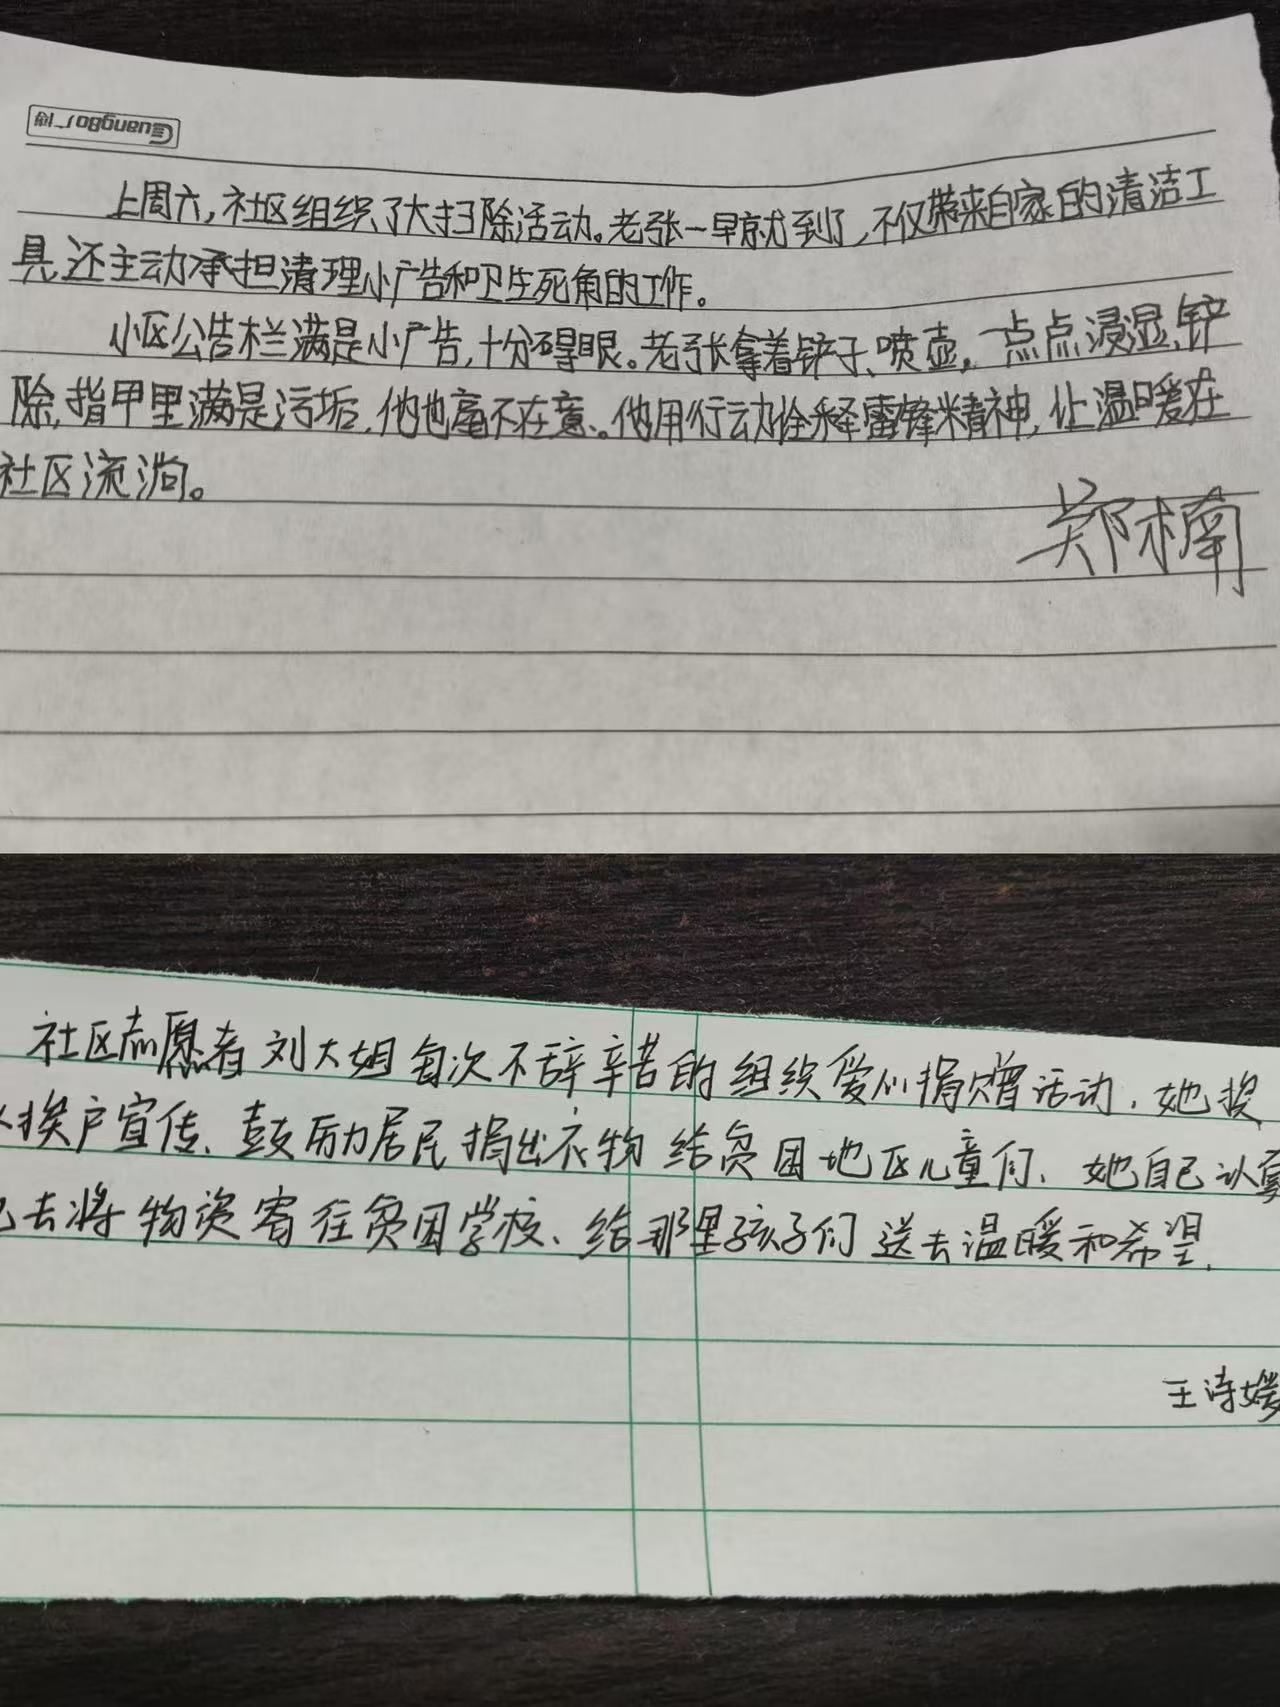 Guangbo 广博
上周六,社区组织了大扫除活动。老张一早就到了,不仅带来自家的清洁工
具,还主动承担清理小广告和卫生死角的工作。
小区公告栏满是小广告,十分碍眼。老张拿着铲子、喷壶,一点点浸湿、铲
除,指甲里满是污垢,他也毫不在意。他用行动诠释雷锋精神,让温暖在
社区流淌。
郑楠
社区志愿者刘大姐每次不辞辛苦的组织爱心捐赠活动,她挨
挨户宣传、鼓励居民捐出衣物给贫困地区儿童们、她自己认真
去将物资寄往贫困学校、给那里孩子们送去温暖和希望.
王诗媛